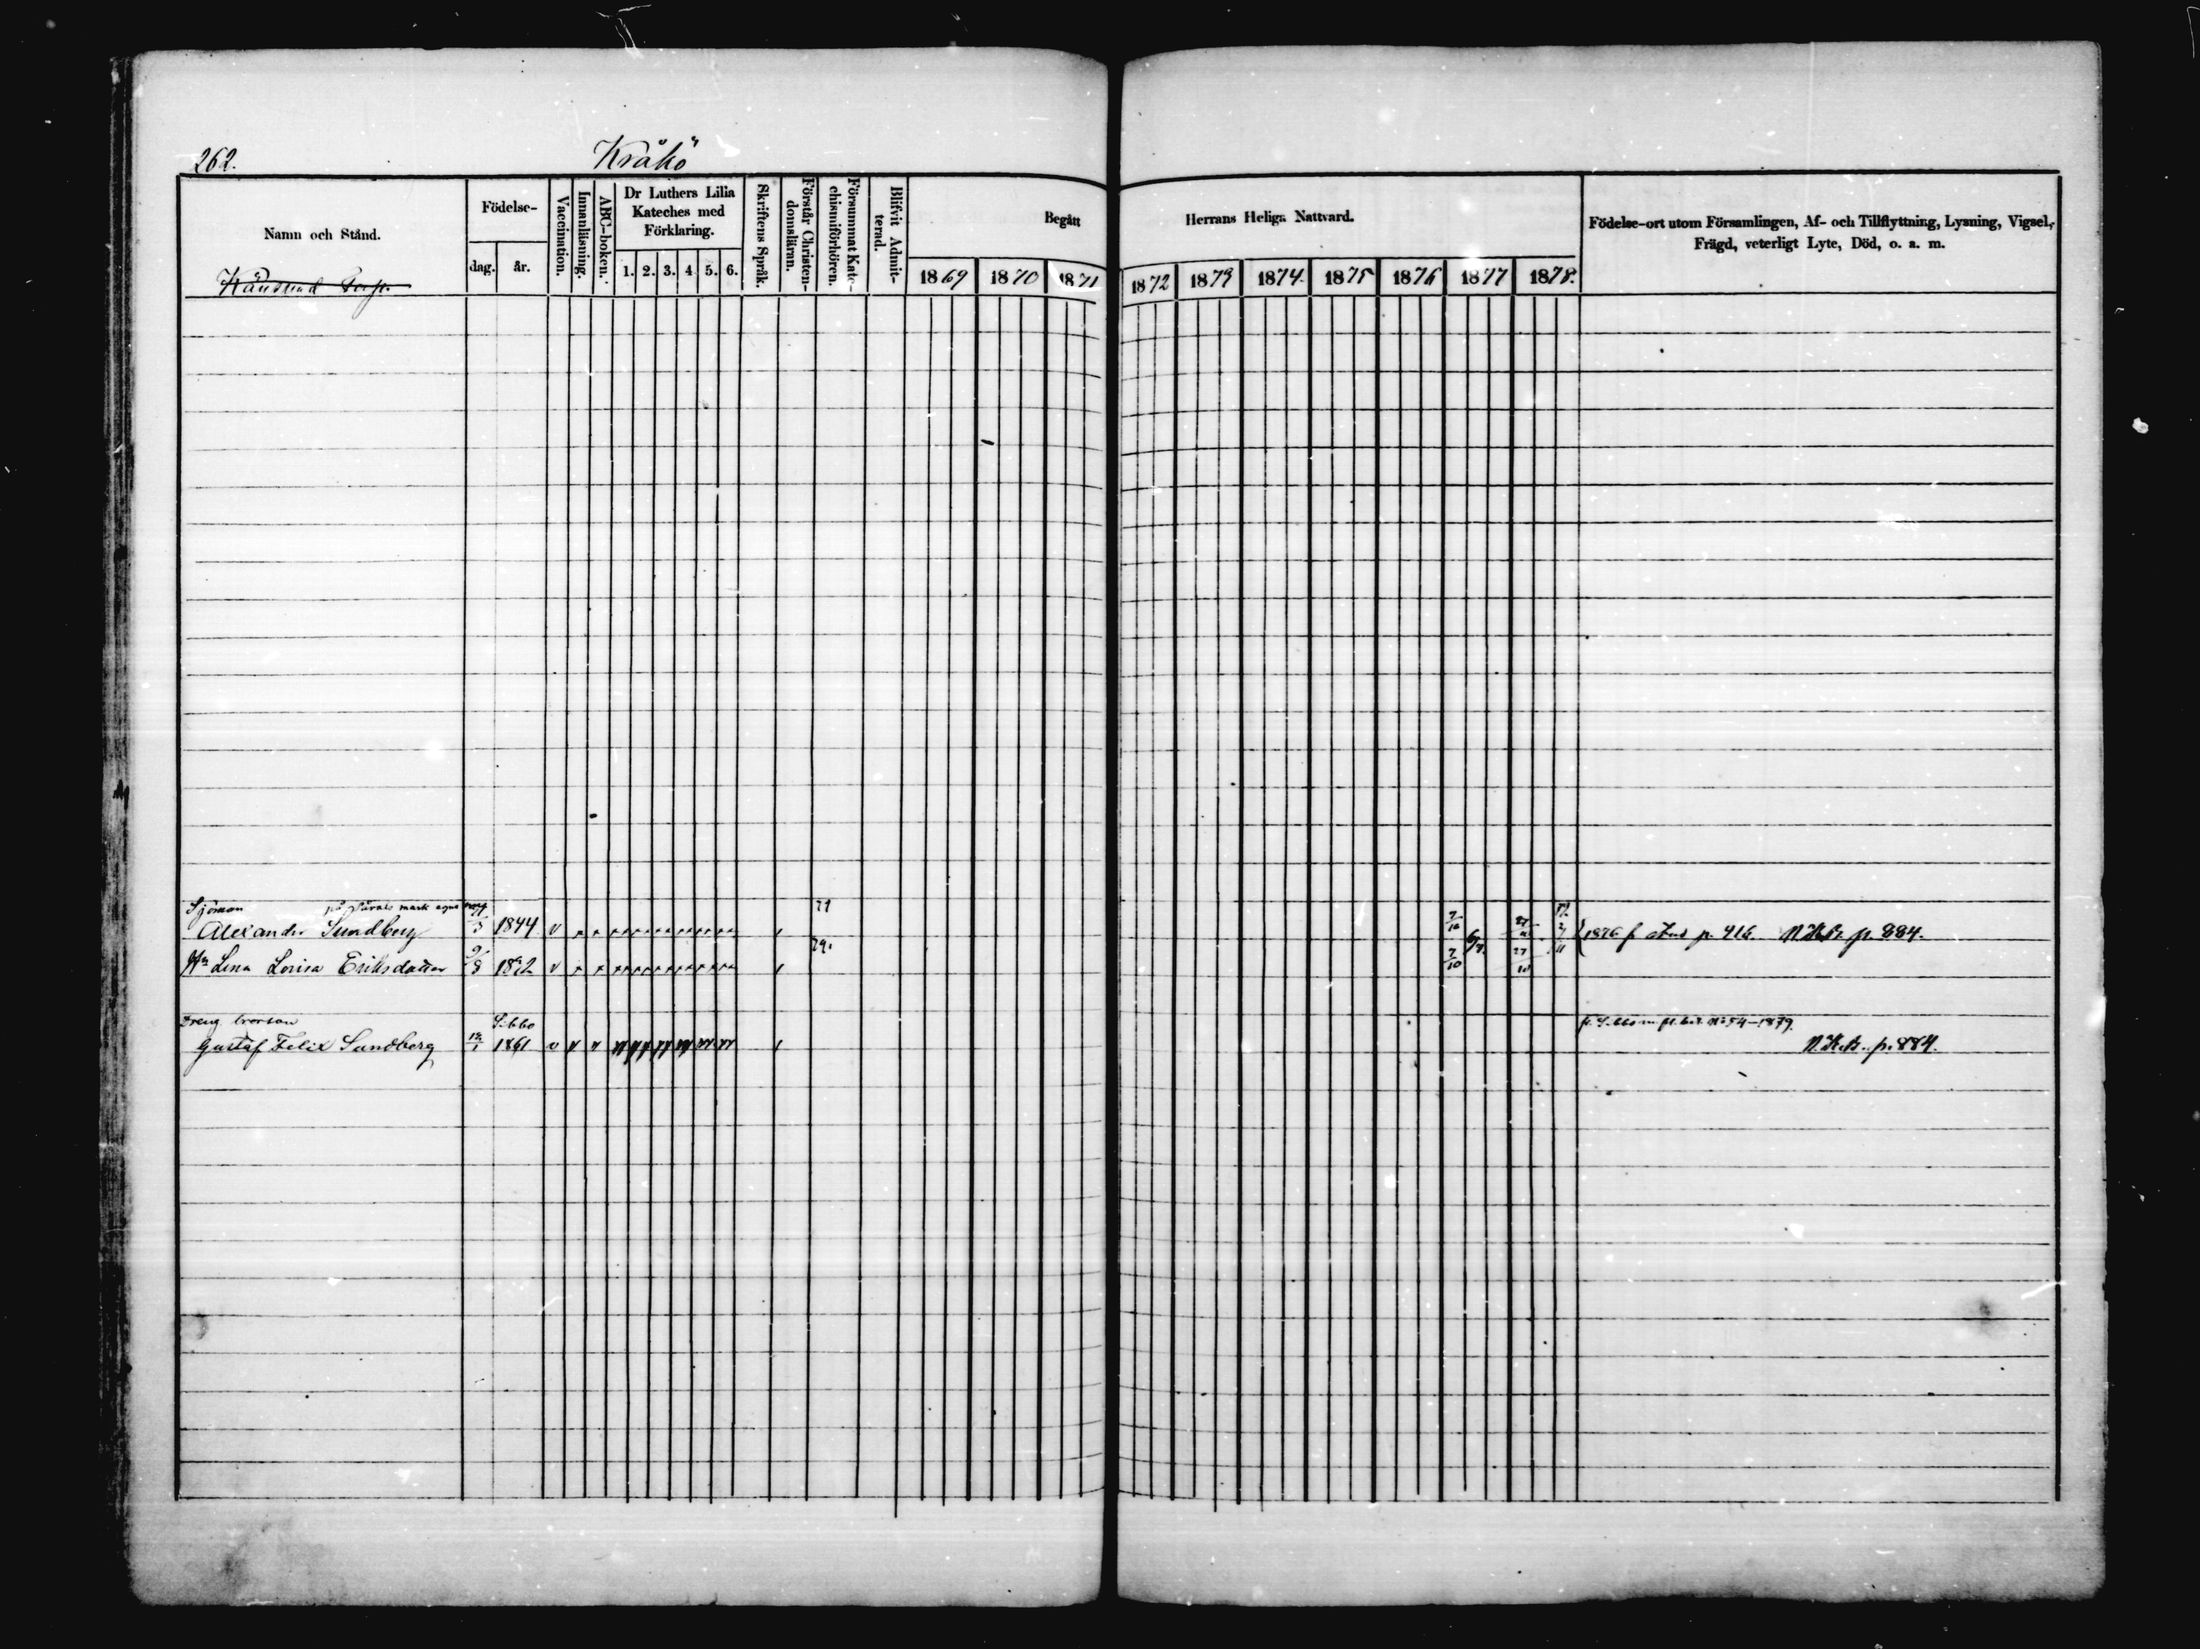 262.
Kråkö
Namn och Stånd.
Födelse-
dag.
år.
Vaccination.
Innanläsning.
ABC-boken.
Dr Luthers Lilla
Kateches med
Förklaring.
1. 2. 3. 4. 5. 6.
Skriftens Språk.
Förstår Christen-
domsläran.
Försummat Kate-
chismiförhören.
Blifvit Admit-
terad.
Begått
Herrans Heliga Nattvard.
1869 1870 1871 1872 1873 1874. 1875 1876 1877 1878.
Födelse-ort utom Församlingen, Af- och Tillflyttning, Lysning, Vigsel,
Frägd, veterligt Lyte, Död, o. a. m.
Sjöman på mark
Alexander Sundberg 1844 v 1876 f p. 416. N.K.B. p. 884.
Hu Lena Lovisa Eriksdotter 9/8 v 7/10 27/10
Dreng brorson Sibbo 1879.
Gustaf Felix Sundberg 1861 N.K.B. p. 884.